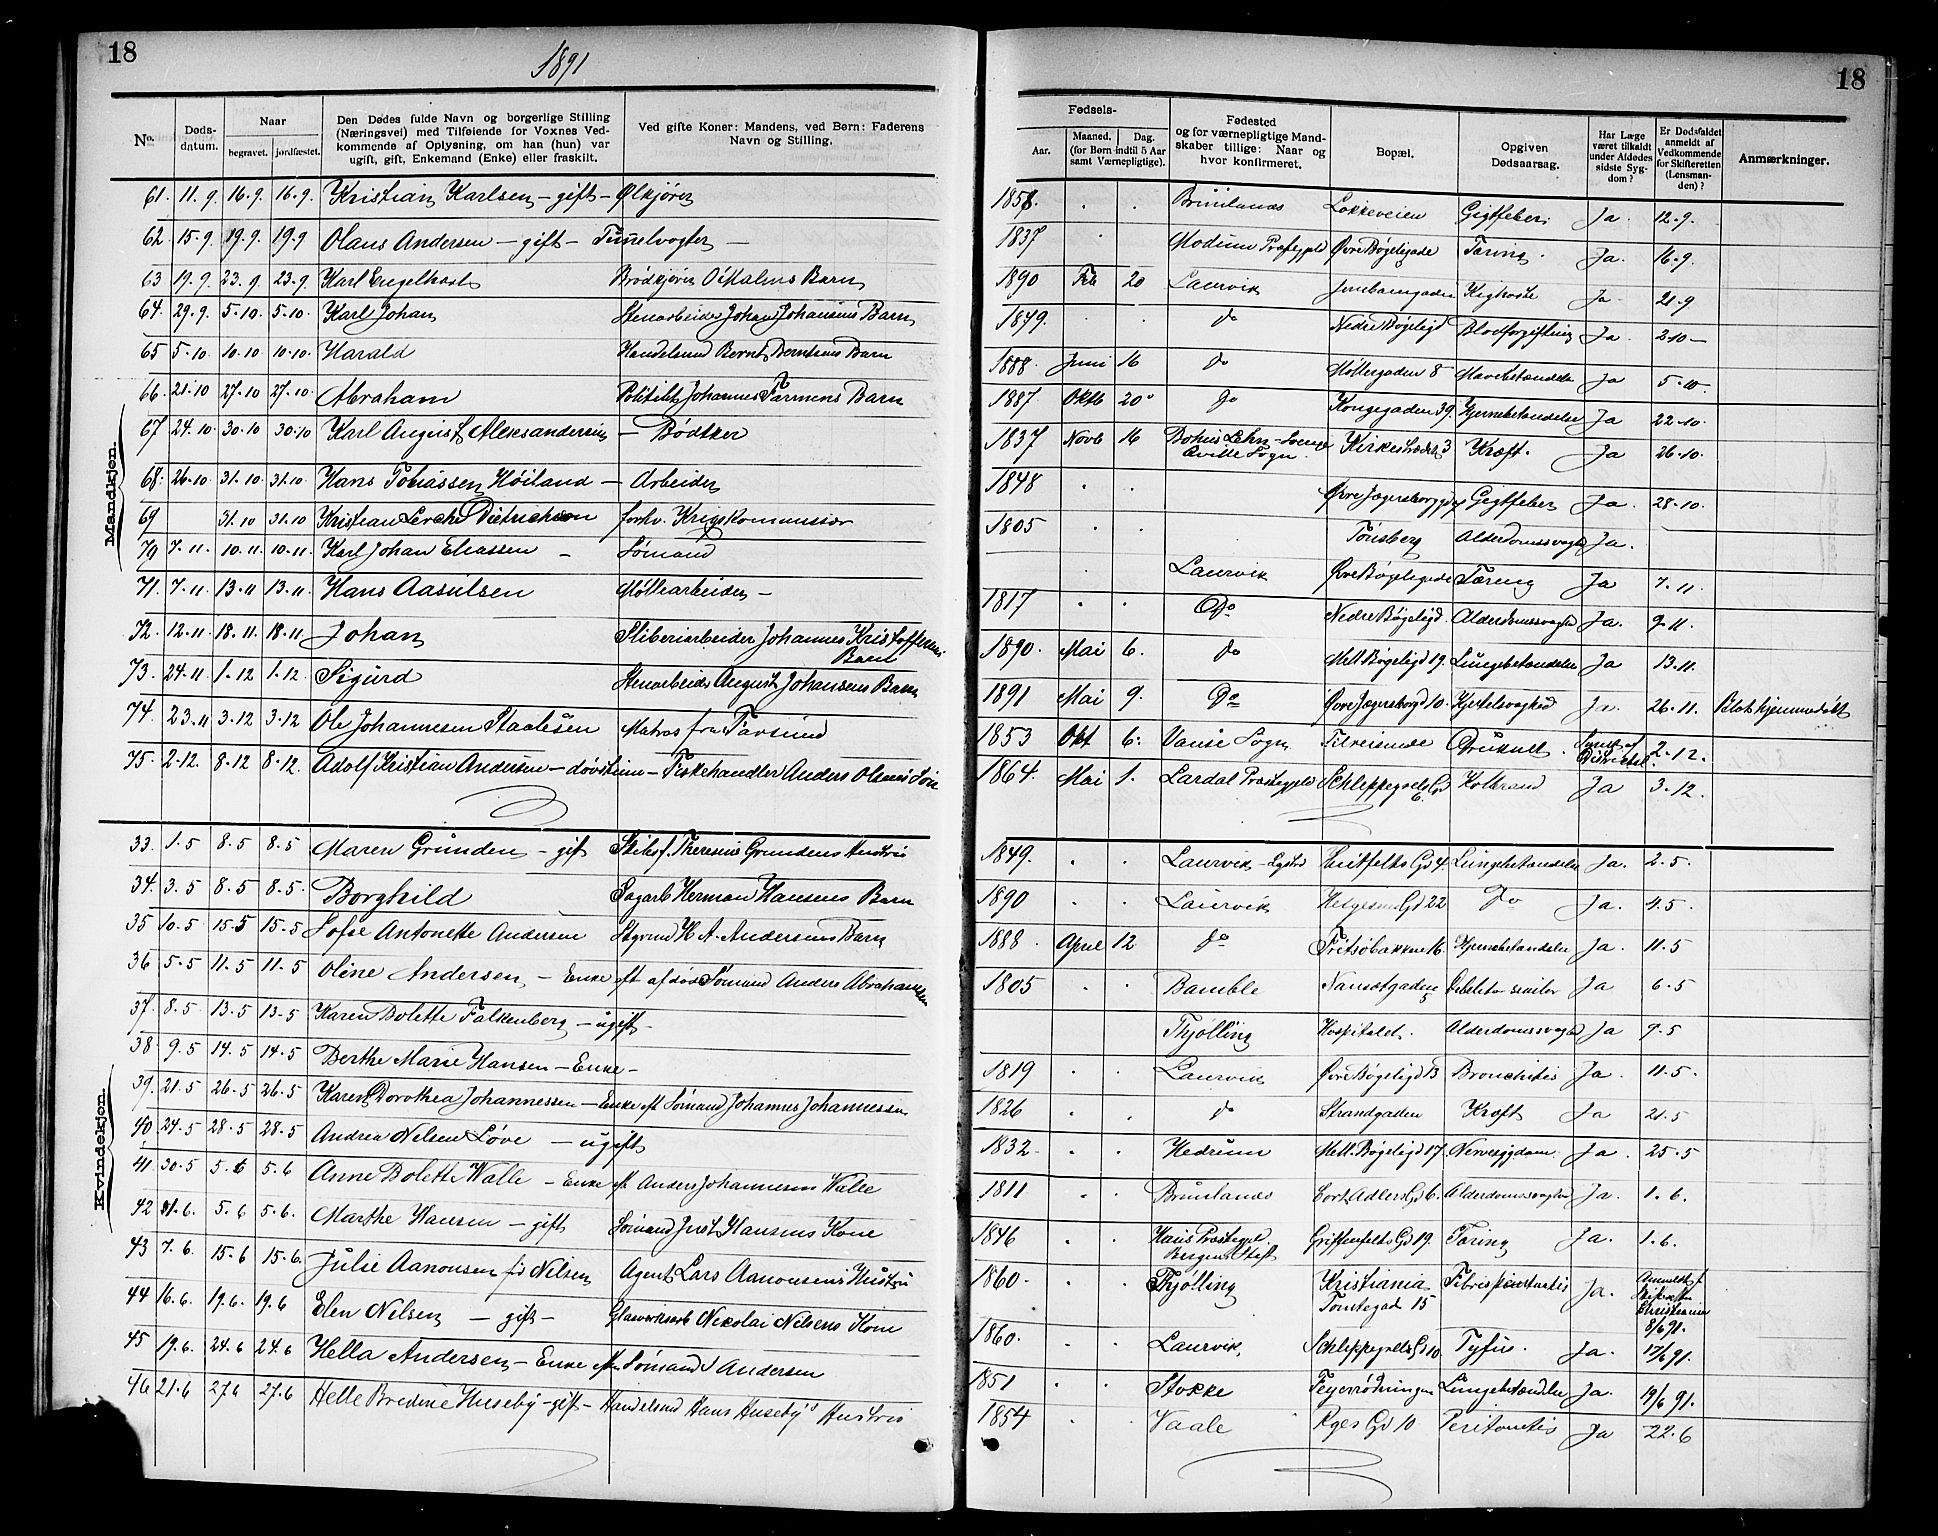 18
1891
No.
Døds-
datum.
Naar
begravet.
jordfæstet.
Den Dødes fulde Navn og borgerlige Stilling
(Næringsvei) med Tilføiende for Voxnes Ved-
kommende af Oplysning, om han (hun) var
ugift, gift, Enkemand (Enke) eller fraskilt.
Ved gifte Koner: Mandens, ved Børn: Faderens
Navn og Stilling.
Mandkjøn.
61. 11.9. 16.9. 16.9. Kristian Karlsen - gift - Ølkjører
62. 15.9. 19.9. 19.9 Olaus Andersen - gift - Tunelvogter -
63 19.9. 23.9. 23.9. Karl Engelhart Brødkjører O. Malms Barn
64. 29.9. 5.10. 5.10. Karl Johan Stenarbeider Johan Johansens Barn
65 5.10 10.10 10.10. Harald Handelsmd Bernt Berntsens Barn
66. 21.10 27.10 27.10. Abraham Politibt. Johannes Farmens Barn
67 24.10 30.10 30.10 Karl August Aleksandersen - Bødtker
68. 26.10 31.10 31.10 Hans Tobiassen Høiland - Arbeider
69 31.10 31.10 Kristian Lerche Dietrichson forhv. Krigskommissær
70 7.11. 10.11. 10.11. Karl Johan Eliassen - Sømand
71. 7.11. 13.11 13.11. Hans Aasulsen Møllearbeider -
72. 12.11 18.11. 18.11 Johan Sliberiarbeider Johannes Kristoffersens
Barn
73. 24.11 1.12 1.12. Sigurd Stenarbeider August Johansens Barn
74. 23.11 3.12 3.12 Ole Johannesen Staalesen Matros fra Farsund
75. 2.12. 8.12 8.12. Adolf Kristian Andersen - døvstum - Fiskehandler Anders Olsens Søn
Kvindekjøn.
33. 1.5 8.5 8.5 Maren Grunden - gift Skibsf. Theresius Grundens Hustru
34. 3.5 8.5 8.5. Borghild Sagarb Herman Hansens Barn
35 10.5 15.5 15.5 Sofie Antonette Andersen Styrmd H. A. Andersens Barn
36 5.5 11.5 11.5 Oline Andersen - Enke eft afdøde Sømand Anders Abrahamsen
37. 8.5 13.5 13.5 Karen Bolette Falkenberg - ugift -
38. 9.5 14.5 14.5 Berthe Marie Hansen - Enke -
39. 21.5 26.5 26.5 Karen Dorothea Johannessen - Enke eft Sømand Johannes Johannessen
40 24.5 28.5 28.5 Andrea Nilsen Løve - ugift
41. 30.5 5.6 5.6 Anne Bolette Walle - Enke eft. Anders Johannesen Walle
42 1.6. 5.6 5.6. Marthe Hansen - gift Sømand Just Hansens Kone
43 7.6. 15.6 15.6. Julie Aanonsen fød Nilsen Agent Lars Aanonsens Hustru
44 16.6. 19.6. 19.6 Elen Nilsen - gift - Glasverksarb Nikolai Nilsens Kone
45 19.6. 24.6 24.6 Hella Andersen - Enke efter Sømand Andersen
46 21.6 27.6 27.6 Helle Bredine Huseby - gift - Handelsmd Hans Huseby's Hustru
18
Fødsels-
Aar.
Maaned.
Dag.
(for Børn indtil 5 Aar
samt Værnepligtige).
Fødested
og for værnepligtige Mand-
skaber tillige: Naar og
hvor konfirmeret.
Bopæl.
Opgiven
Dødsaarsag.
Har Læge
været tilkaldt
under Afdødes
sidste Syg-
dom?
Er Dødsfaldet
anmeldt af
Vedkommende
for Skifteretten
(Lensman-
den)?
Anmærkninger.
1858. . . Brunlanes Løkkeveien Gigtfeber. Ja. 12.9.
1837 . Modum Præstegjeld Øvre Bøgeligade Tæring. Ja. 16.9.
1890 Feb 20 Laurvik Jernbanegaden Kighoste Ja 21.9.
1849. . . do Nedre Bøgeligd Blodforgiftning Ja. 2.10 -
1888. Juni 16 do Møllergaden 8 Mavebetændelse Ja 5.10.
1887. Oktb 20. do Kongegaden 39. Hjernebetændelse Ja 22.10.
1837 Novb 16 Bohus Lehn - Sverige
Qville Sogn. Kirkestrædet 3 Kræft. Ja 26.10.
1848 . . Øvre Jægersborggd Gigtfeber Ja. 28.10.
1805 . . Tønsberg Alderdomssvaghed Ja.
Laurvik Øvre Bøgeligade Tæring Ja 7.11.
1817 . . Do Nedre Bøgeligd. Alderdomssvaghed Ja. 9.11.
1890. Mai 6. do Mell. Bøgeligd 19. Lungebetændelse Ja 13.11.
1891 Mai 9. Do Øvre Jægersborgd 10. Kjertelsvaghed Ja. 26.11. Blot hjemmedøbt
1853 Okt 6. Vanse Sogn Tilreisende Druknet. 2.12.
1864. Mai 1. Lardal Præstegjeld Schleppegrells Gd
6. Ja 3.12.
1849. . . Laurvik Huitfelts Gd 4. Lungebetændelse Ja. 2.5.
1890 . . Laurvik Helgesens Gd 22 Do Ja. 4.5.
1888. April 12 do Fritsøbakken 16. Hjernebetændelse Ja. 11.5
1805 . . Bamble Nansetgaden
5 Debilitas senilis Ja 6.5
Thjølling Hospitalet. Alderdomssvaghed Ja 9.5
1819 . . Laurvik Øvre Bøgeligd 13 Bronchitis Ja. 11.5.
1826 . . do Strandgaden Kræft Ja 21.5
1832 . . Hedrum Mell. Bøgeligd 17. Nervesygdom. Ja. 25.5
1811 . . Brunlanes Cort Adlers Gd 6. Alderdomssvaghed Ja. 1.6.
1846 . . Haus Præstegjel.
Bergens Stift Griffenfelts Gd 19. Tæring Ja. 1.6.
1860. . . Thjølling Kristiania
Tomtegade 15 Ja. Anmeldt f.
Skifteretten
Christiania
8/6 91.
1860. . . Laurvik, Schleppegrells Gd 10 Tyfus. Ja. 17/6 91.
1851 . . Stokke Feyerrødningen Lungebetændelse Ja. 19/6 91.
1854 Vaale Gd 10 Peritonitis Ja 22.6